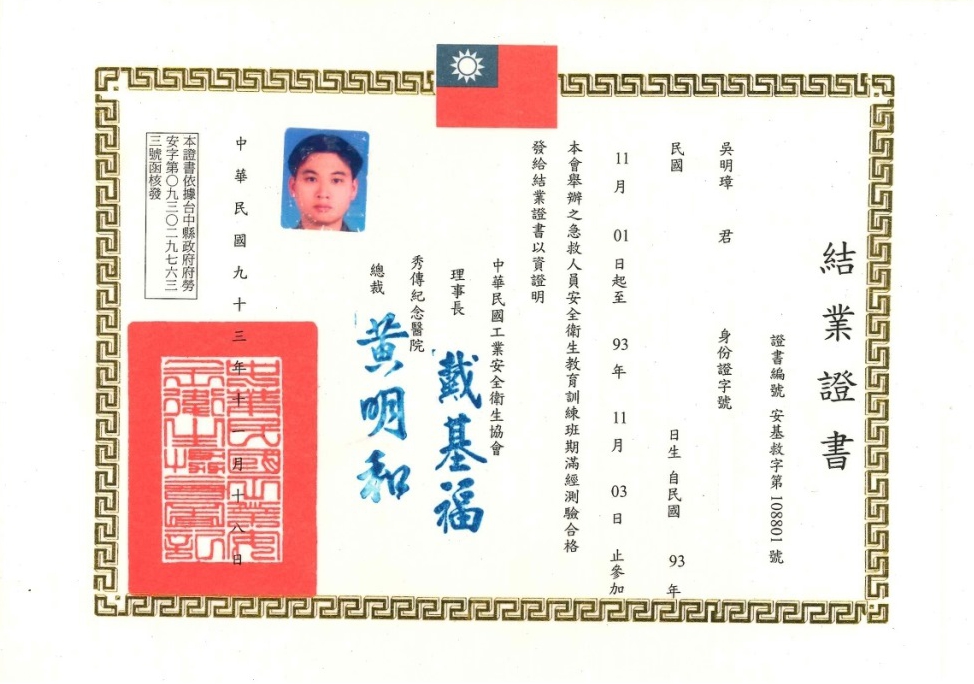 結業證書
證書編號 安基救字第 108801 號
吳明璋 君 身份證字號
民國 日生 自民國 93 年
11 月 01 日起至 93 年 11 月 03 日 止參加
本會舉辦之急救人員安全衛生教育訓練班期滿經測驗合格
發給結業證書以資證明
中華民國工業安全衛生協會
理事長 戴基福
秀傳紀念醫院
總裁 黃明和
中華民國九十三年十一月十八日
本證書依據台中縣政府府勞
安字第〇九三〇二九七六三
三號函核發